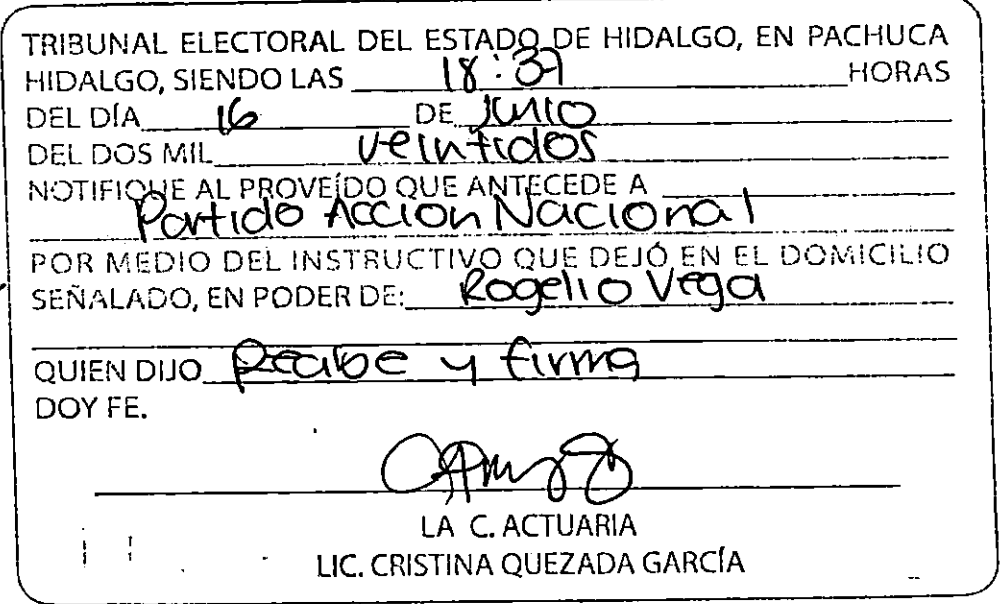 TRIBUNAL ELECTORAL DEL ESTADO DE HIDALGO, EN PACHUCA
HIDALGO, SIENDO LAS 18:37 HORAS
DEL DÍA 16 DE Junio
DEL DOS MIL veintidos
NOTIFIQUE AL PROVEÍDO QUE ANTECEDE A
Partido Accion Nacional
POR MEDIO DEL INSTRUCTIVO QUE DEJÓ EN EL DOMICILIO
SEÑALADO, EN PODER DE: Rogelio Vega
QUIEN DIJO Recibe y firma
DOY FE.
LA C. ACTUARIA
LIC. CRISTINA QUEZADA GARCÍA